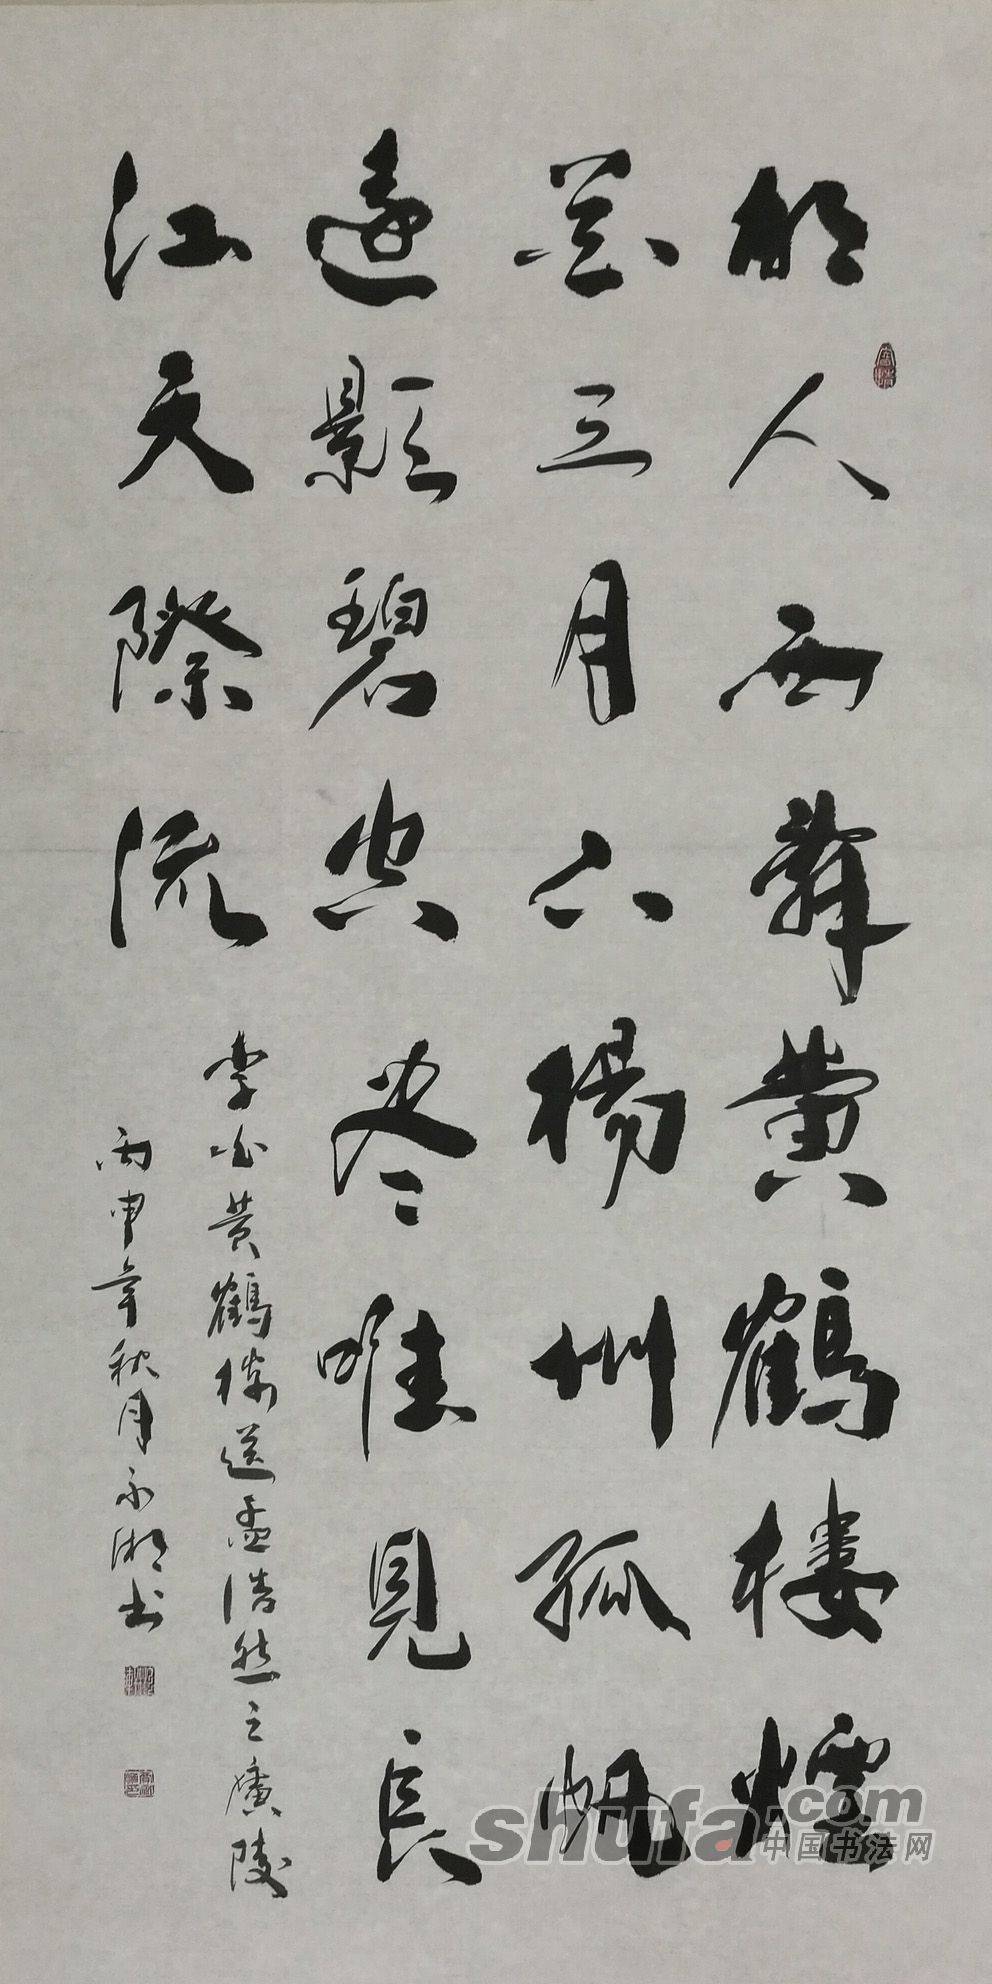 故人西辭黄鶴樓煙
花三月下揚州孤帆
遠影碧空尽唯見長
江天際流
李白黄鶴楼送孟浩然之廣陵
丙申年秋月永湘书
shufa.com
中国书法网